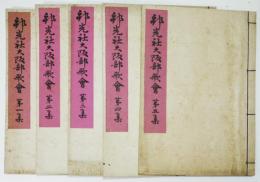 邦光社大阪部歌會 第一集
邦光社大阪部歌會 第二集
邦光社大阪部歌會 第三集
邦光社大阪部歌會 第四集
邦光社大阪部歌會 第五集